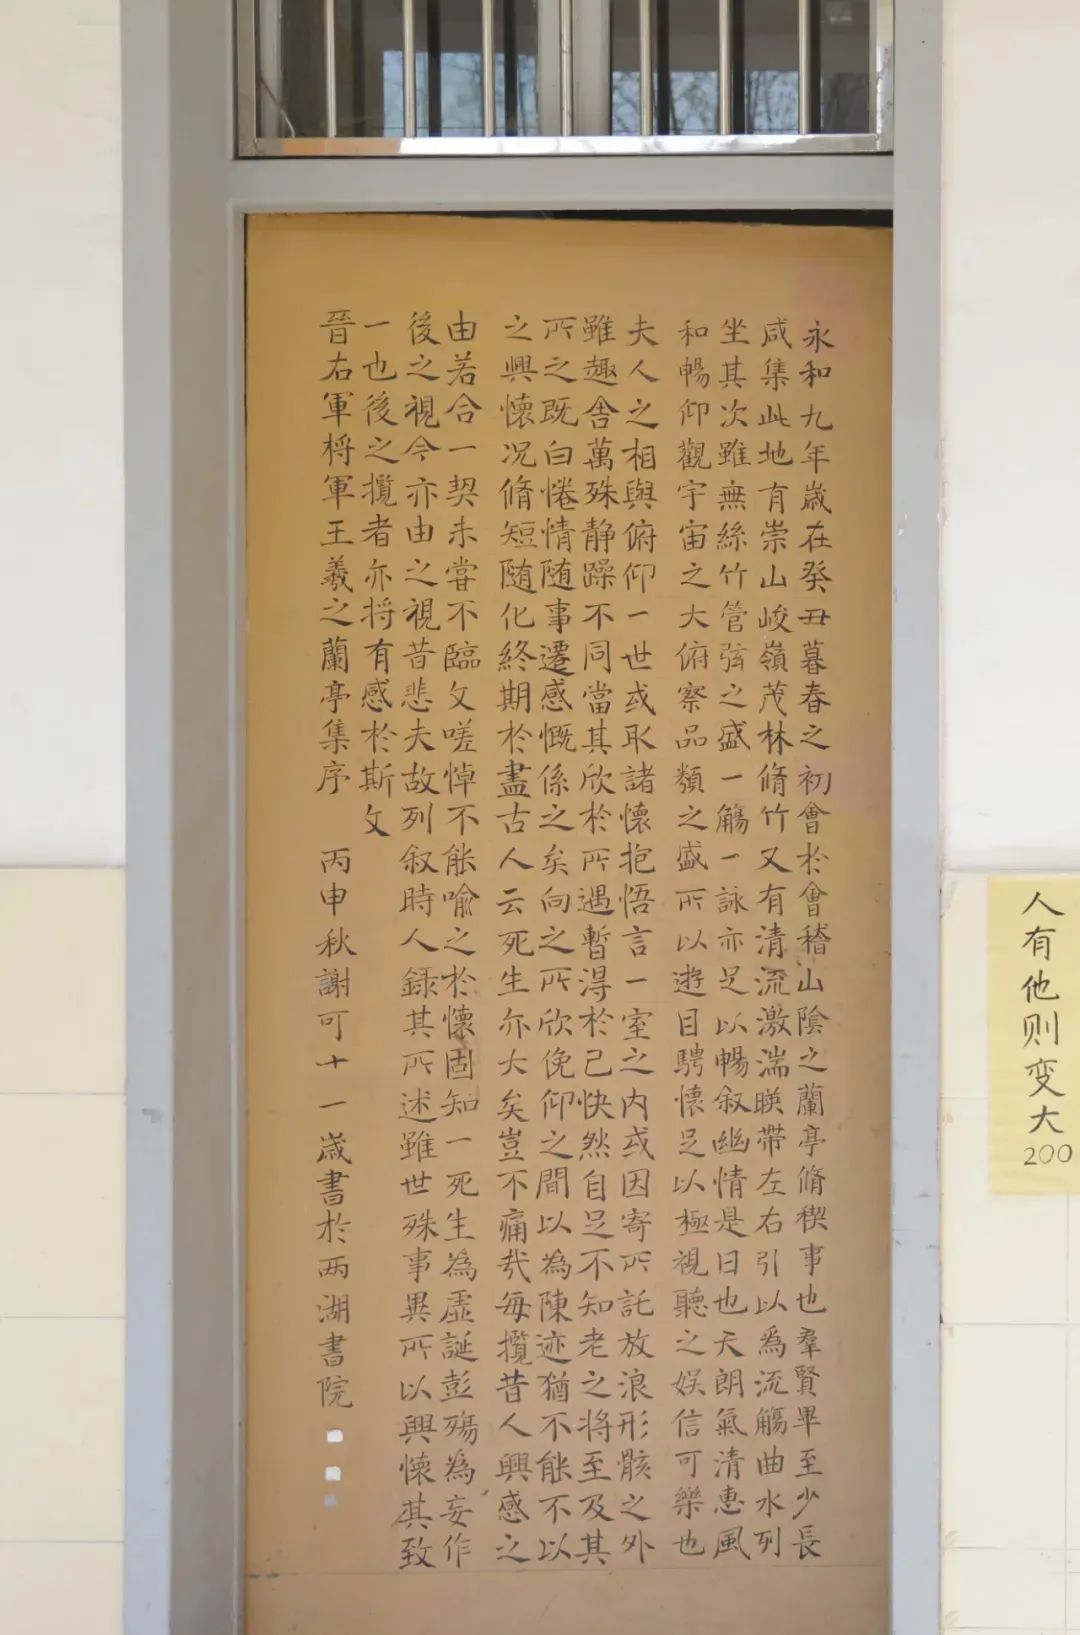 永和九年歲在癸丑暮春之初會於會稽山陰之蘭亭脩稧事也羣賢畢至少長
咸集此地有崇山峻嶺茂林脩竹又有清流激湍暎帶左右引以為流觴曲水列
坐其次雖無絲竹管弦之盛一觴一詠亦足以暢叙幽情是日也天朗氣清惠風
和暢仰觀宇宙之大俯察品類之盛所以遊目騁懷足以極視聽之娱信可樂也
夫人之相與俯仰一世或取諸懷抱悟言一室之內或因寄所託放浪形骸之外
雖趣舍萬殊静躁不同當其欣於所遇暫得於己快然自足不知老之将至及其
所之既白惓情随事遷感慨係之矣向之所欣俛仰之閒以為陳迹猶不能不以
之興懷况脩短随化終期於盡古人云死生亦大矣豈不痛哉每攬昔人興感之
由若合一契未甞不臨文嗟悼不能喻之於懷固知一死生為虛誕彭殤為妄作
後之視今亦由之視昔悲夫故列叙時人録其所述雖世殊事異所以興懷其致
一也後之攬者亦将有感於斯文
晉右軍将軍王羲之蘭亭集序 丙申秋謝可十一歲書於两湖書院
人有他则变大
200